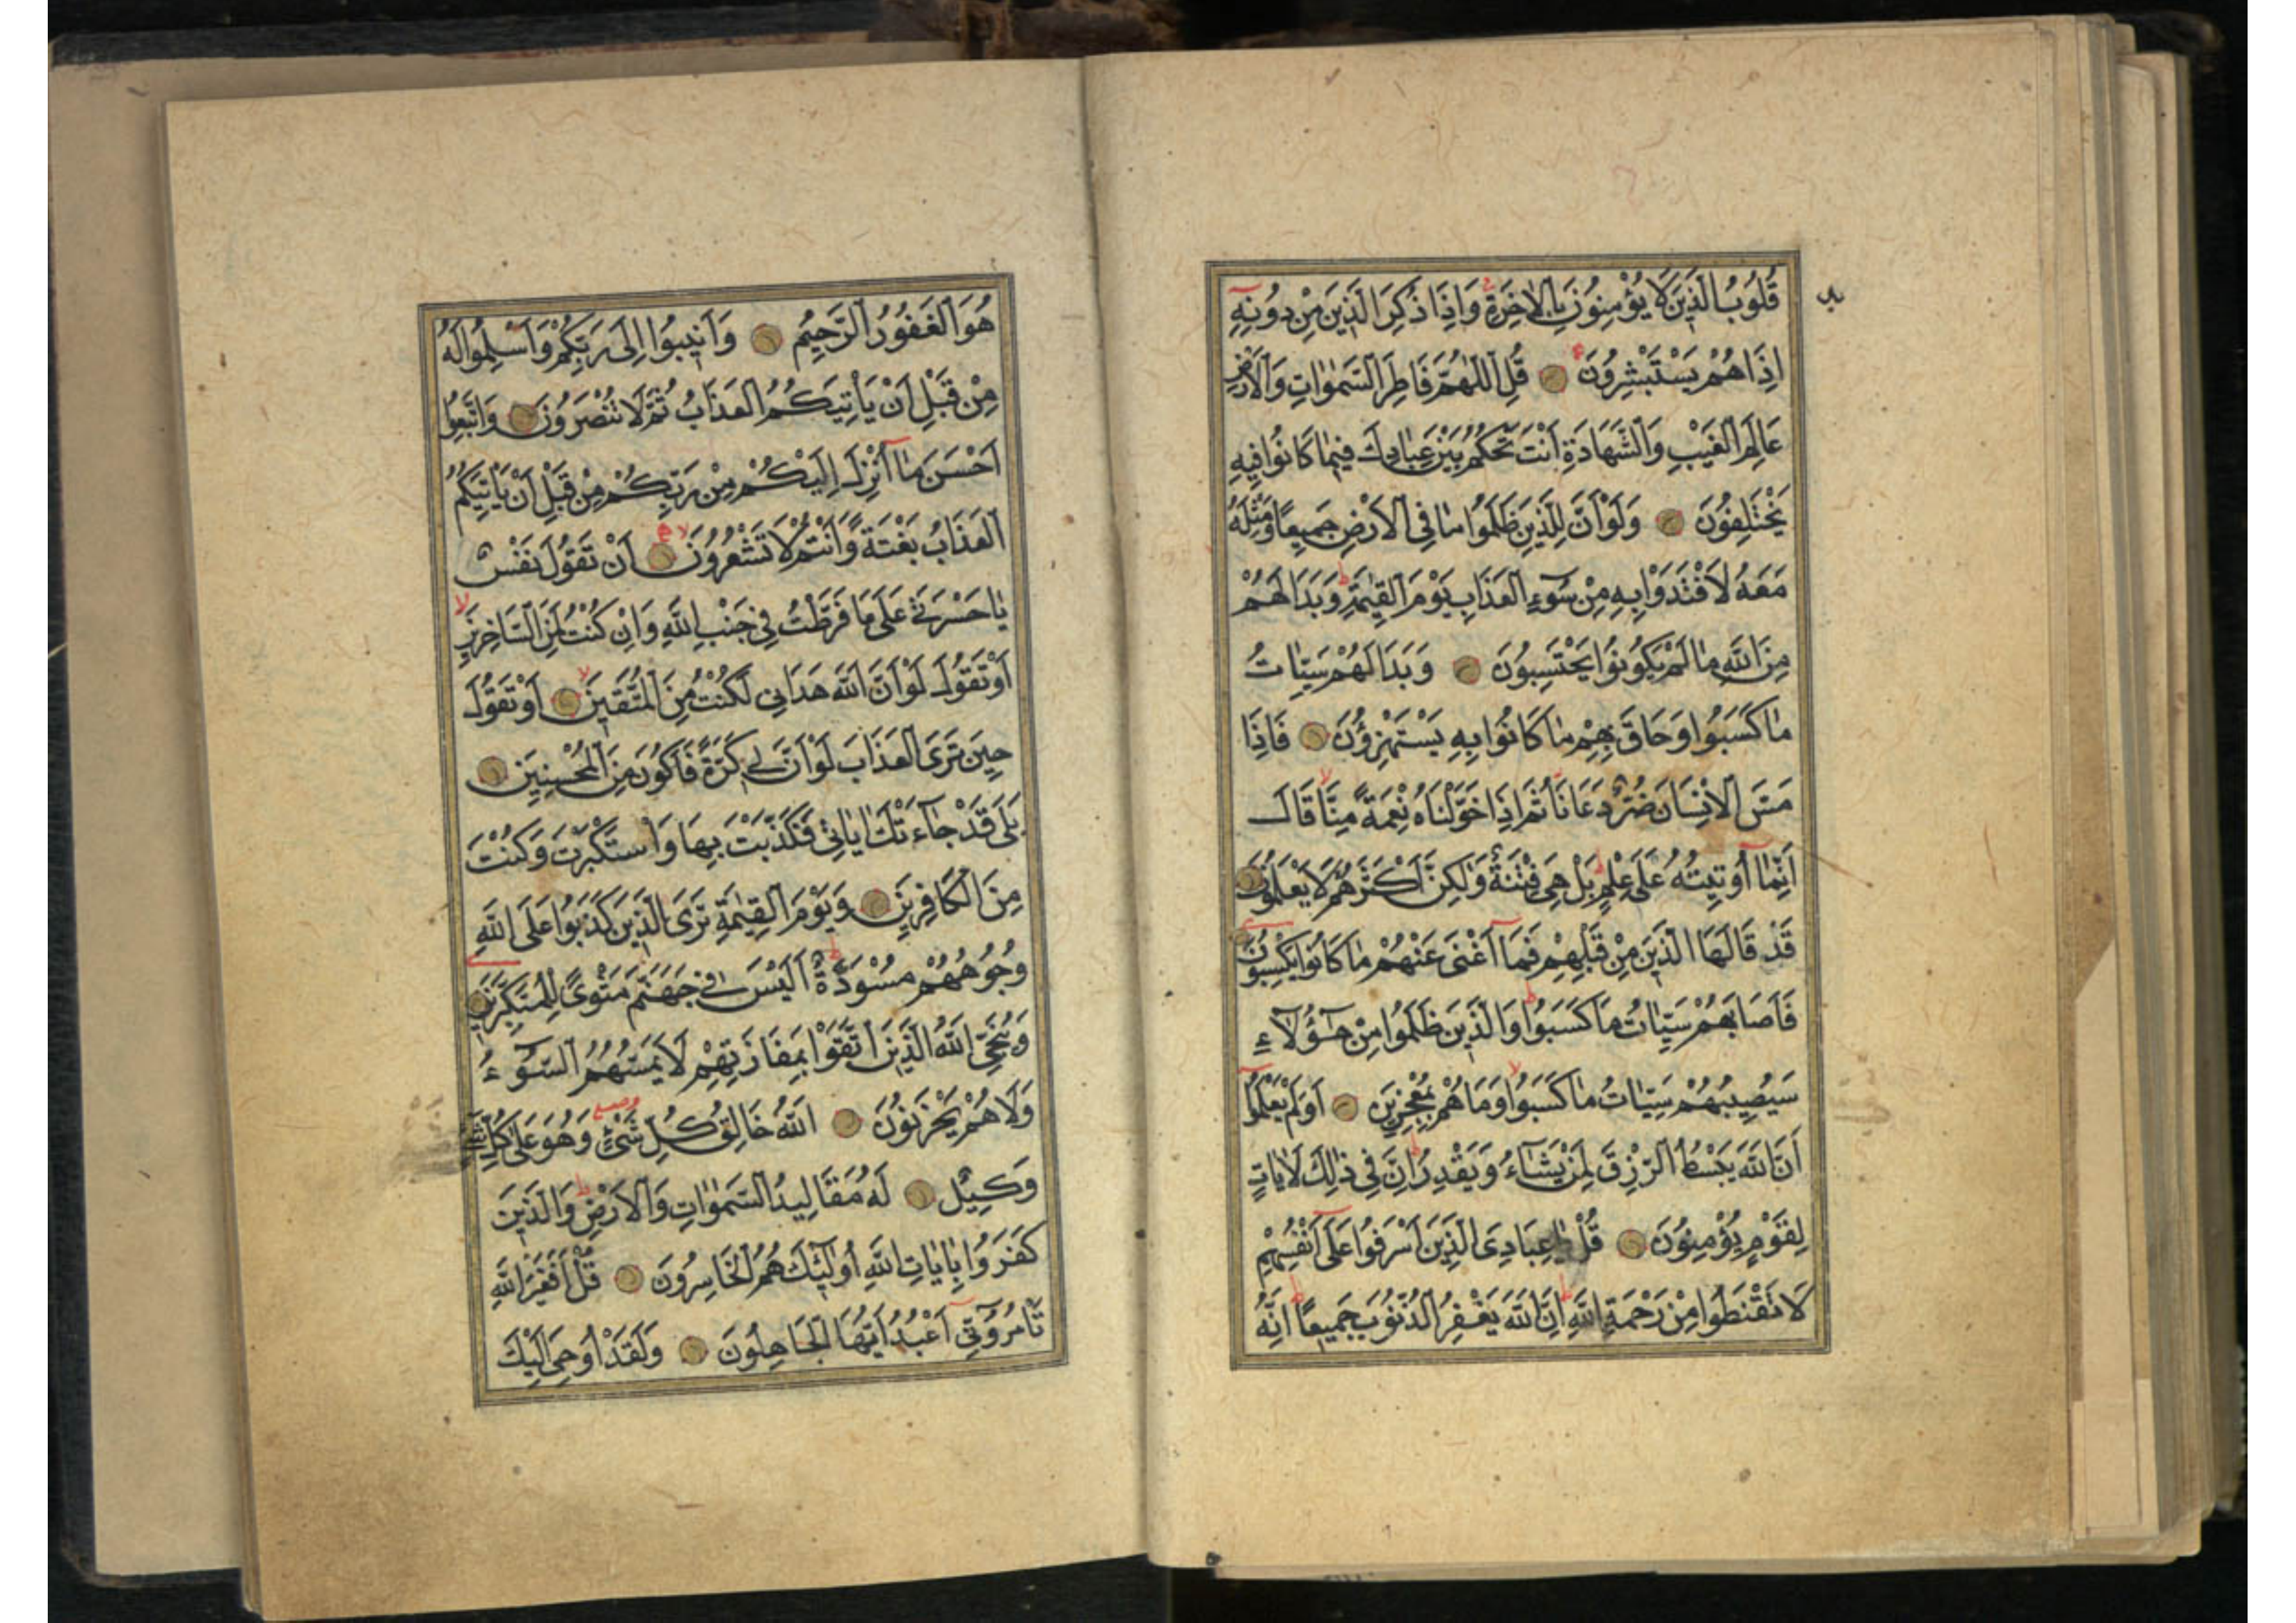 قُلُوبُ الَّذِينَ لَا يُؤْمِنُونَ بِالْاٰخِرَةِ وَاِذَا ذُكِرَ الَّذِينَ مِنْ دُونِهِ
اِذَا هُمْ يَسْتَبْشِرُونَ قُلِ اللّٰهُمَّ فَاطِرَ السَّمٰوَاتِ وَالْاَرْضِ
عَالِمَ الْغَيْبِ وَالشَّهَادَةِ اَنْتَ تَحْكُمُ بَيْنَ عِبَادِكَ فِيمَا كَانُوا فِيهِ
يَخْتَلِفُونَ وَلَوْ اَنَّ لِلَّذِينَ ظَلَمُوا مَا فِي الْاَرْضِ جَمِيعًا وَمِثْلَهُ
مَعَهُ لَافْتَدَوْا بِهِ مِنْ سُوٓءِ الْعَذَابِ يَوْمَ الْقِيٰمَةِ وَبَدَا لَهُمْ
مِنَ اللّٰهِ مَا لَمْ يَكُونُوا يَحْتَسِبُونَ وَبَدَا لَهُمْ سَيِّاٰتُ
مَا كَسَبُوا وَحَاقَ بِهِمْ مَا كَانُوا بِهِ يَسْتَهْزِؤُنَ فَاِذَا
مَسَّ الْاِنْسَانَ ضُرٌّ دَعَانَا ثُمَّ اِذَا خَوَّلْنَاهُ نِعْمَةً مِنَّا قَالَ
اِنَّمَٓا اُو۫تِيتُهُ عَلٰى عِلْمٍ بَلْ هِيَ فِتْنَةٌ وَلٰكِنَّ اَكْثَرَهُمْ لَا يَعْلَمُونَ
قَدْ قَالَهَا الَّذِينَ مِنْ قَبْلِهِمْ فَمَٓا اَغْنٰى عَنْهُمْ مَا كَانُوا يَكْسِبُونَ
فَاَصَابَهُمْ سَيِّاٰتُ مَا كَسَبُوا وَالَّذِينَ ظَلَمُوا مِنْ هٰٓؤُلَٓاءِ
سَيُصِيبُهُمْ سَيِّاٰتُ مَا كَسَبُوا وَمَا هُمْ بِمُعْجِزِينَ اَوَلَمْ يَعْلَمُٓوا
اَنَّ اللّٰهَ يَبْسُطُ الرِّزْقَ لِمَنْ يَشَٓاءُ وَيَقْدِرُ اِنَّ فِي ذٰلِكَ لَاٰيَاتٍ
لِقَوْمٍ يُؤْمِنُونَ قُلْ يَا عِبَادِيَ الَّذِينَ اَسْرَفُوا عَلٰٓى اَنْفُسِهِمْ
لَا تَقْنَطُوا مِنْ رَحْمَةِ اللّٰهِ اِنَّ اللّٰهَ يَغْفِرُ الذُّنُوبَ جَمِيعًا اِنَّهُ
هُوَ الْغَفُورُ الرَّحِيمُ وَاَنِيبُٓوا اِلٰى رَبِّكُمْ وَاَسْلِمُوا لَهُ
مِنْ قَبْلِ اَنْ يَأْتِيَكُمُ الْعَذَابُ ثُمَّ لَا تُنْصَرُونَ وَاتَّبِعُٓوا
اَحْسَنَ مَٓا اُنْزِلَ اِلَيْكُمْ مِنْ رَبِّكُمْ مِنْ قَبْلِ اَنْ يَأْتِيَكُمُ
الْعَذَابُ بَغْتَةً وَاَنْتُمْ لَا تَشْعُرُونَ اَنْ تَقُولَ نَفْسٌ
يَا حَسْرَتٰى عَلٰى مَا فَرَّطْتُ فِي جَنْبِ اللّٰهِ وَاِنْ كُنْتُ لَمِنَ السَّاخِرِينَ
اَوْ تَقُولَ لَوْ اَنَّ اللّٰهَ هَدَانِي لَكُنْتُ مِنَ الْمُتَّقِينَ اَوْ تَقُولَ
حِينَ تَرَى الْعَذَابَ لَوْ اَنَّ لِي كَرَّةً فَاَكُونَ مِنَ الْمُحْسِنِينَ
بَلٰى قَدْ جَٓاءَتْكَ اٰيَاتِي فَكَذَّبْتَ بِهَا وَاسْتَكْبَرْتَ وَكُنْتَ
مِنَ الْكَافِرِينَ وَيَوْمَ الْقِيٰمَةِ تَرَى الَّذِينَ كَذَبُوا عَلَى اللّٰهِ
وُجُوهُهُمْ مُسْوَدَّةٌ اَلَيْسَ فِي جَهَنَّمَ مَثْوًى لِلْمُتَكَبِّرِينَ
وَيُنَجِّي اللّٰهُ الَّذِينَ اتَّقَوْا بِمَفَازَتِهِمْ لَا يَمَسُّهُمُ السُّٓوءُ
وَلَا هُمْ يَحْزَنُونَ اَللّٰهُ خَالِقُ كُلِّ شَيْءٍ وَهُوَ عَلٰى كُلِّ شَيْءٍ
وَكِيلٌ لَهُ مَقَالِيدُ السَّمٰوَاتِ وَالْاَرْضِ وَالَّذِينَ
كَفَرُوا بِاٰيَاتِ اللّٰهِ اُولٰٓئِكَ هُمُ الْخَاسِرُونَ قُلْ اَفَغَيْرَ اللّٰهِ
تَأْمُرُٓونِّي اَعْبُدُ اَيُّهَا الْجَاهِلُونَ وَلَقَدْ اُوحِيَ اِلَيْكَ